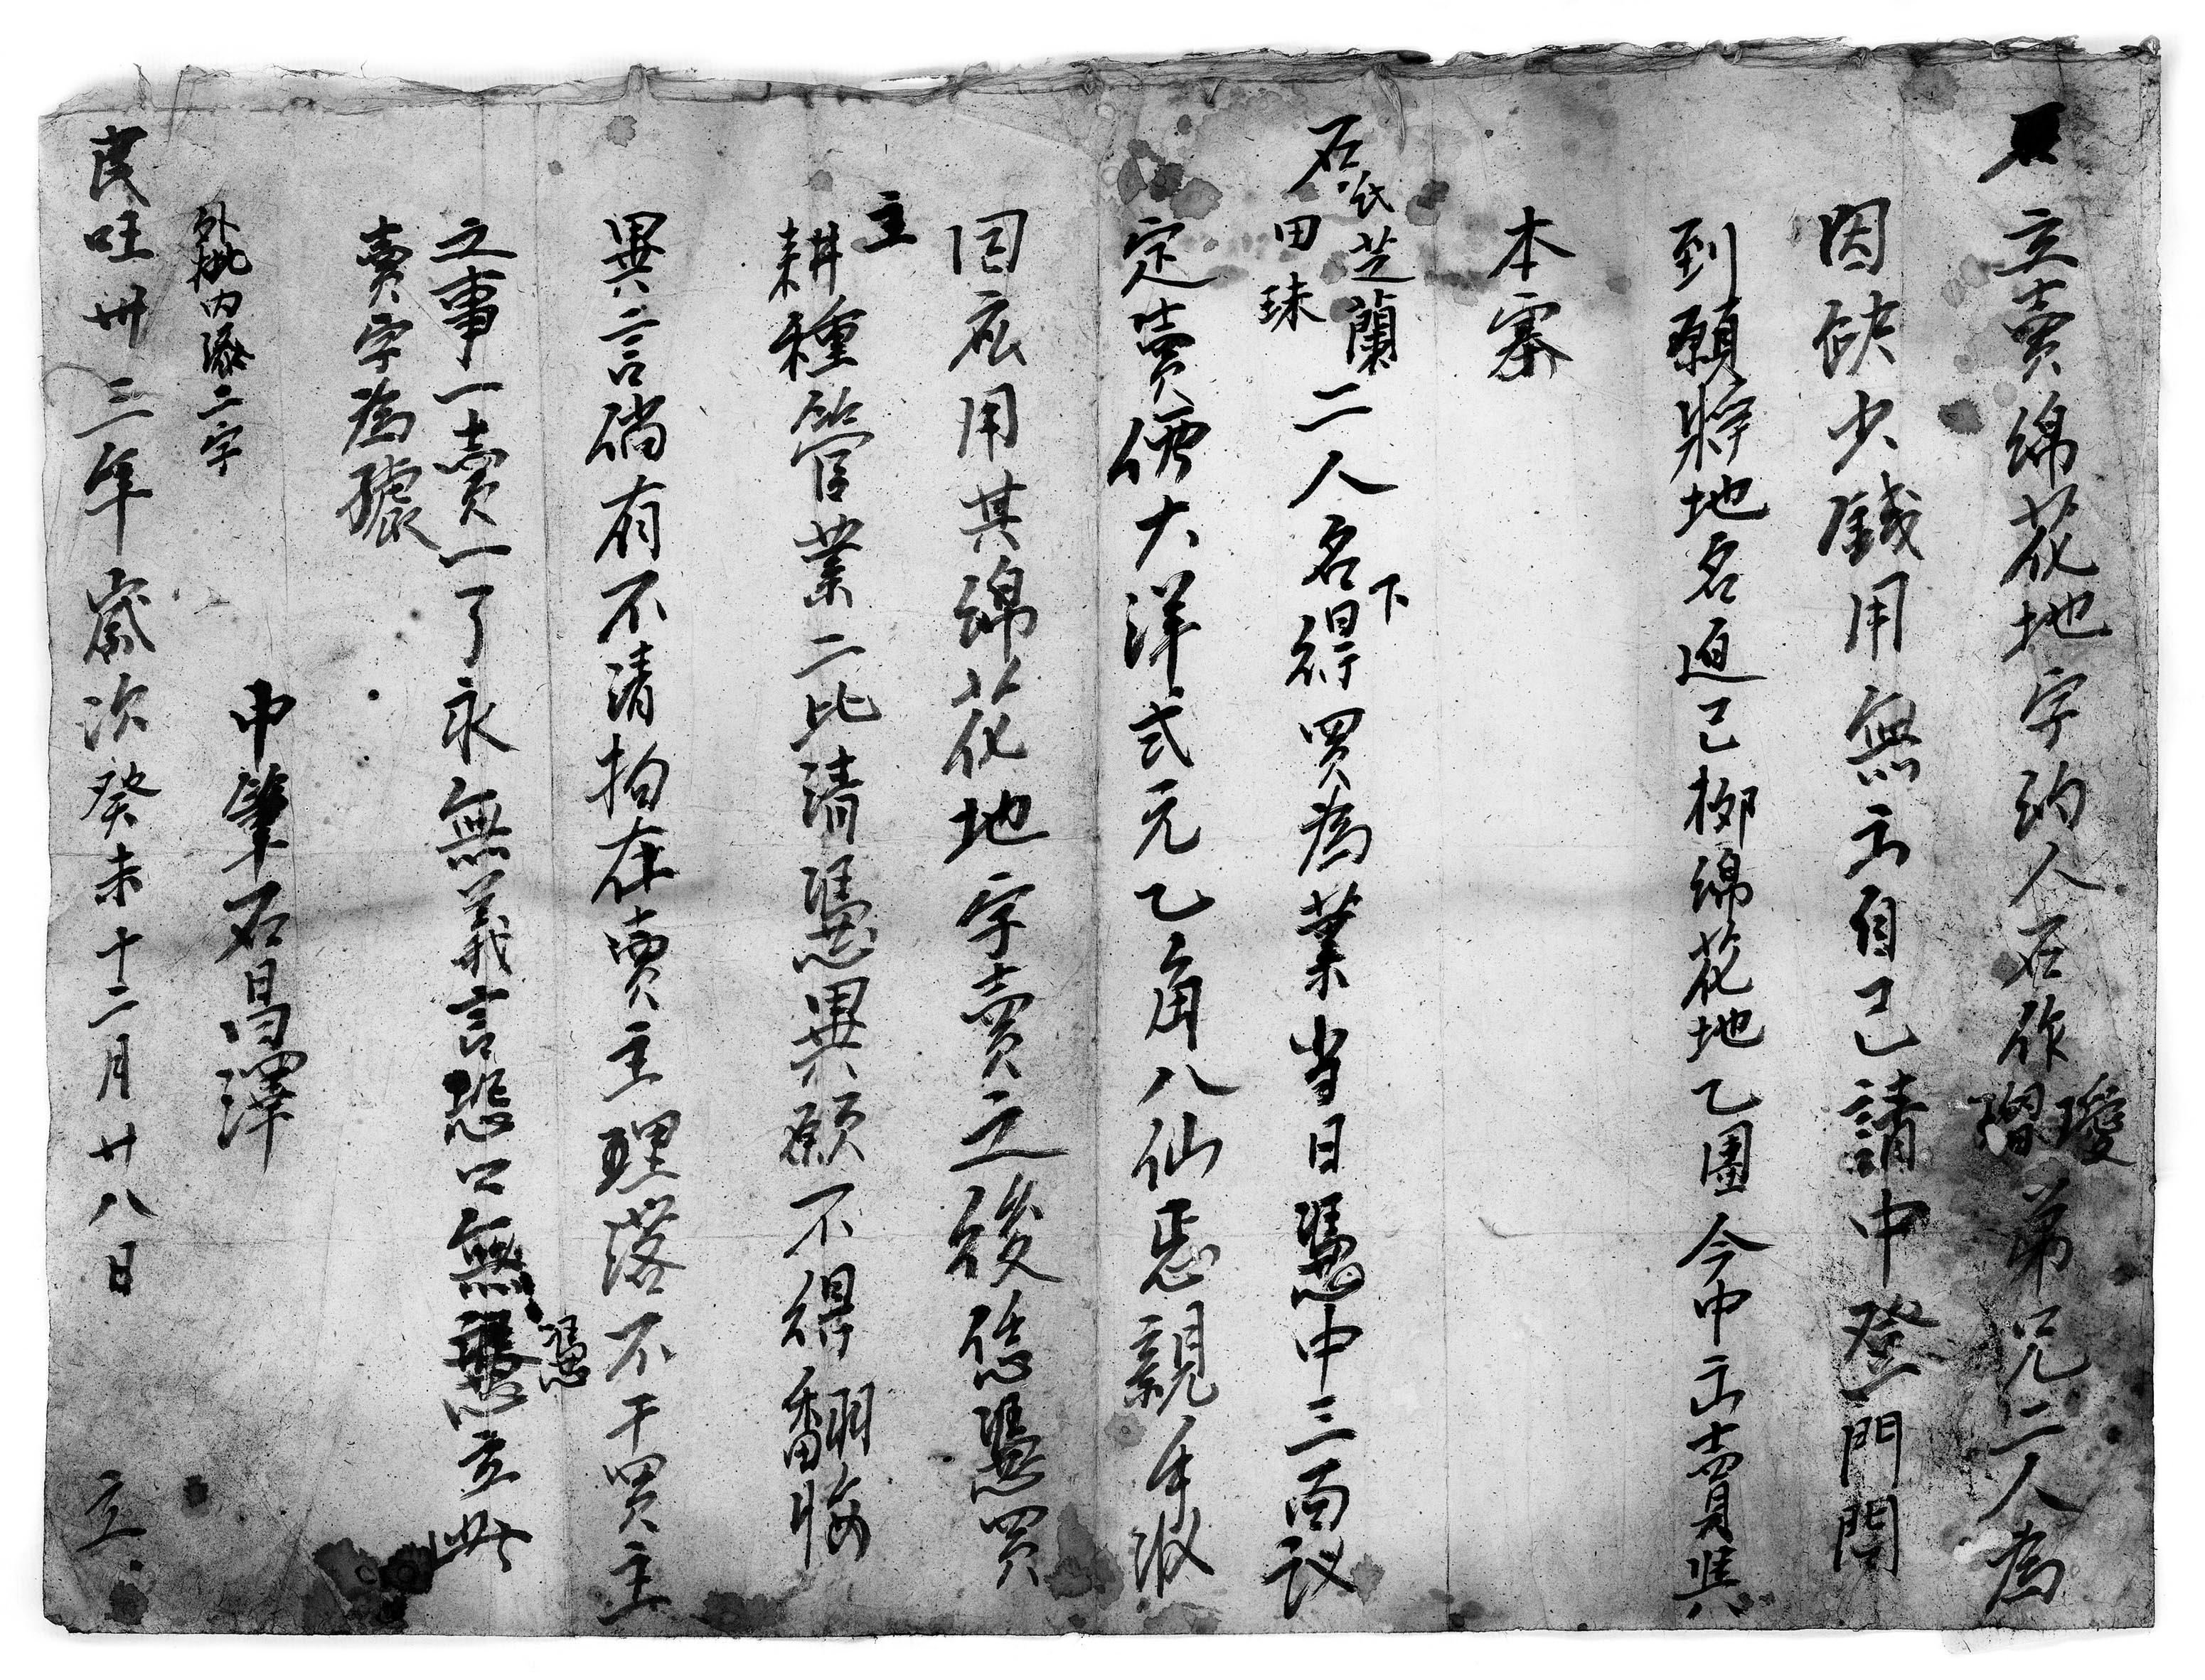 立賣綿花地字約人石作瓊瑠弟兄二人為
因缺少錢用無主自己請中登門問
到願將地名迫己柳綿花地乙團今中立賣與
本寨
石氏芝蘭田珠二人名下得買為業当日憑中三面议
定賣價大洋弍元乙角八仙悉親手收
回應用其綿花地字賣之後恁憑買
主耕種管業二比清憑異願不得翻悔
異言倘有不清拍在賣主理落不干買主
之事一賣一了永無義言恐口無憑立此
賣字為據
中筆石昌澤
外批内添二字
民国卅三年歲次癸未十二月廿八日 立